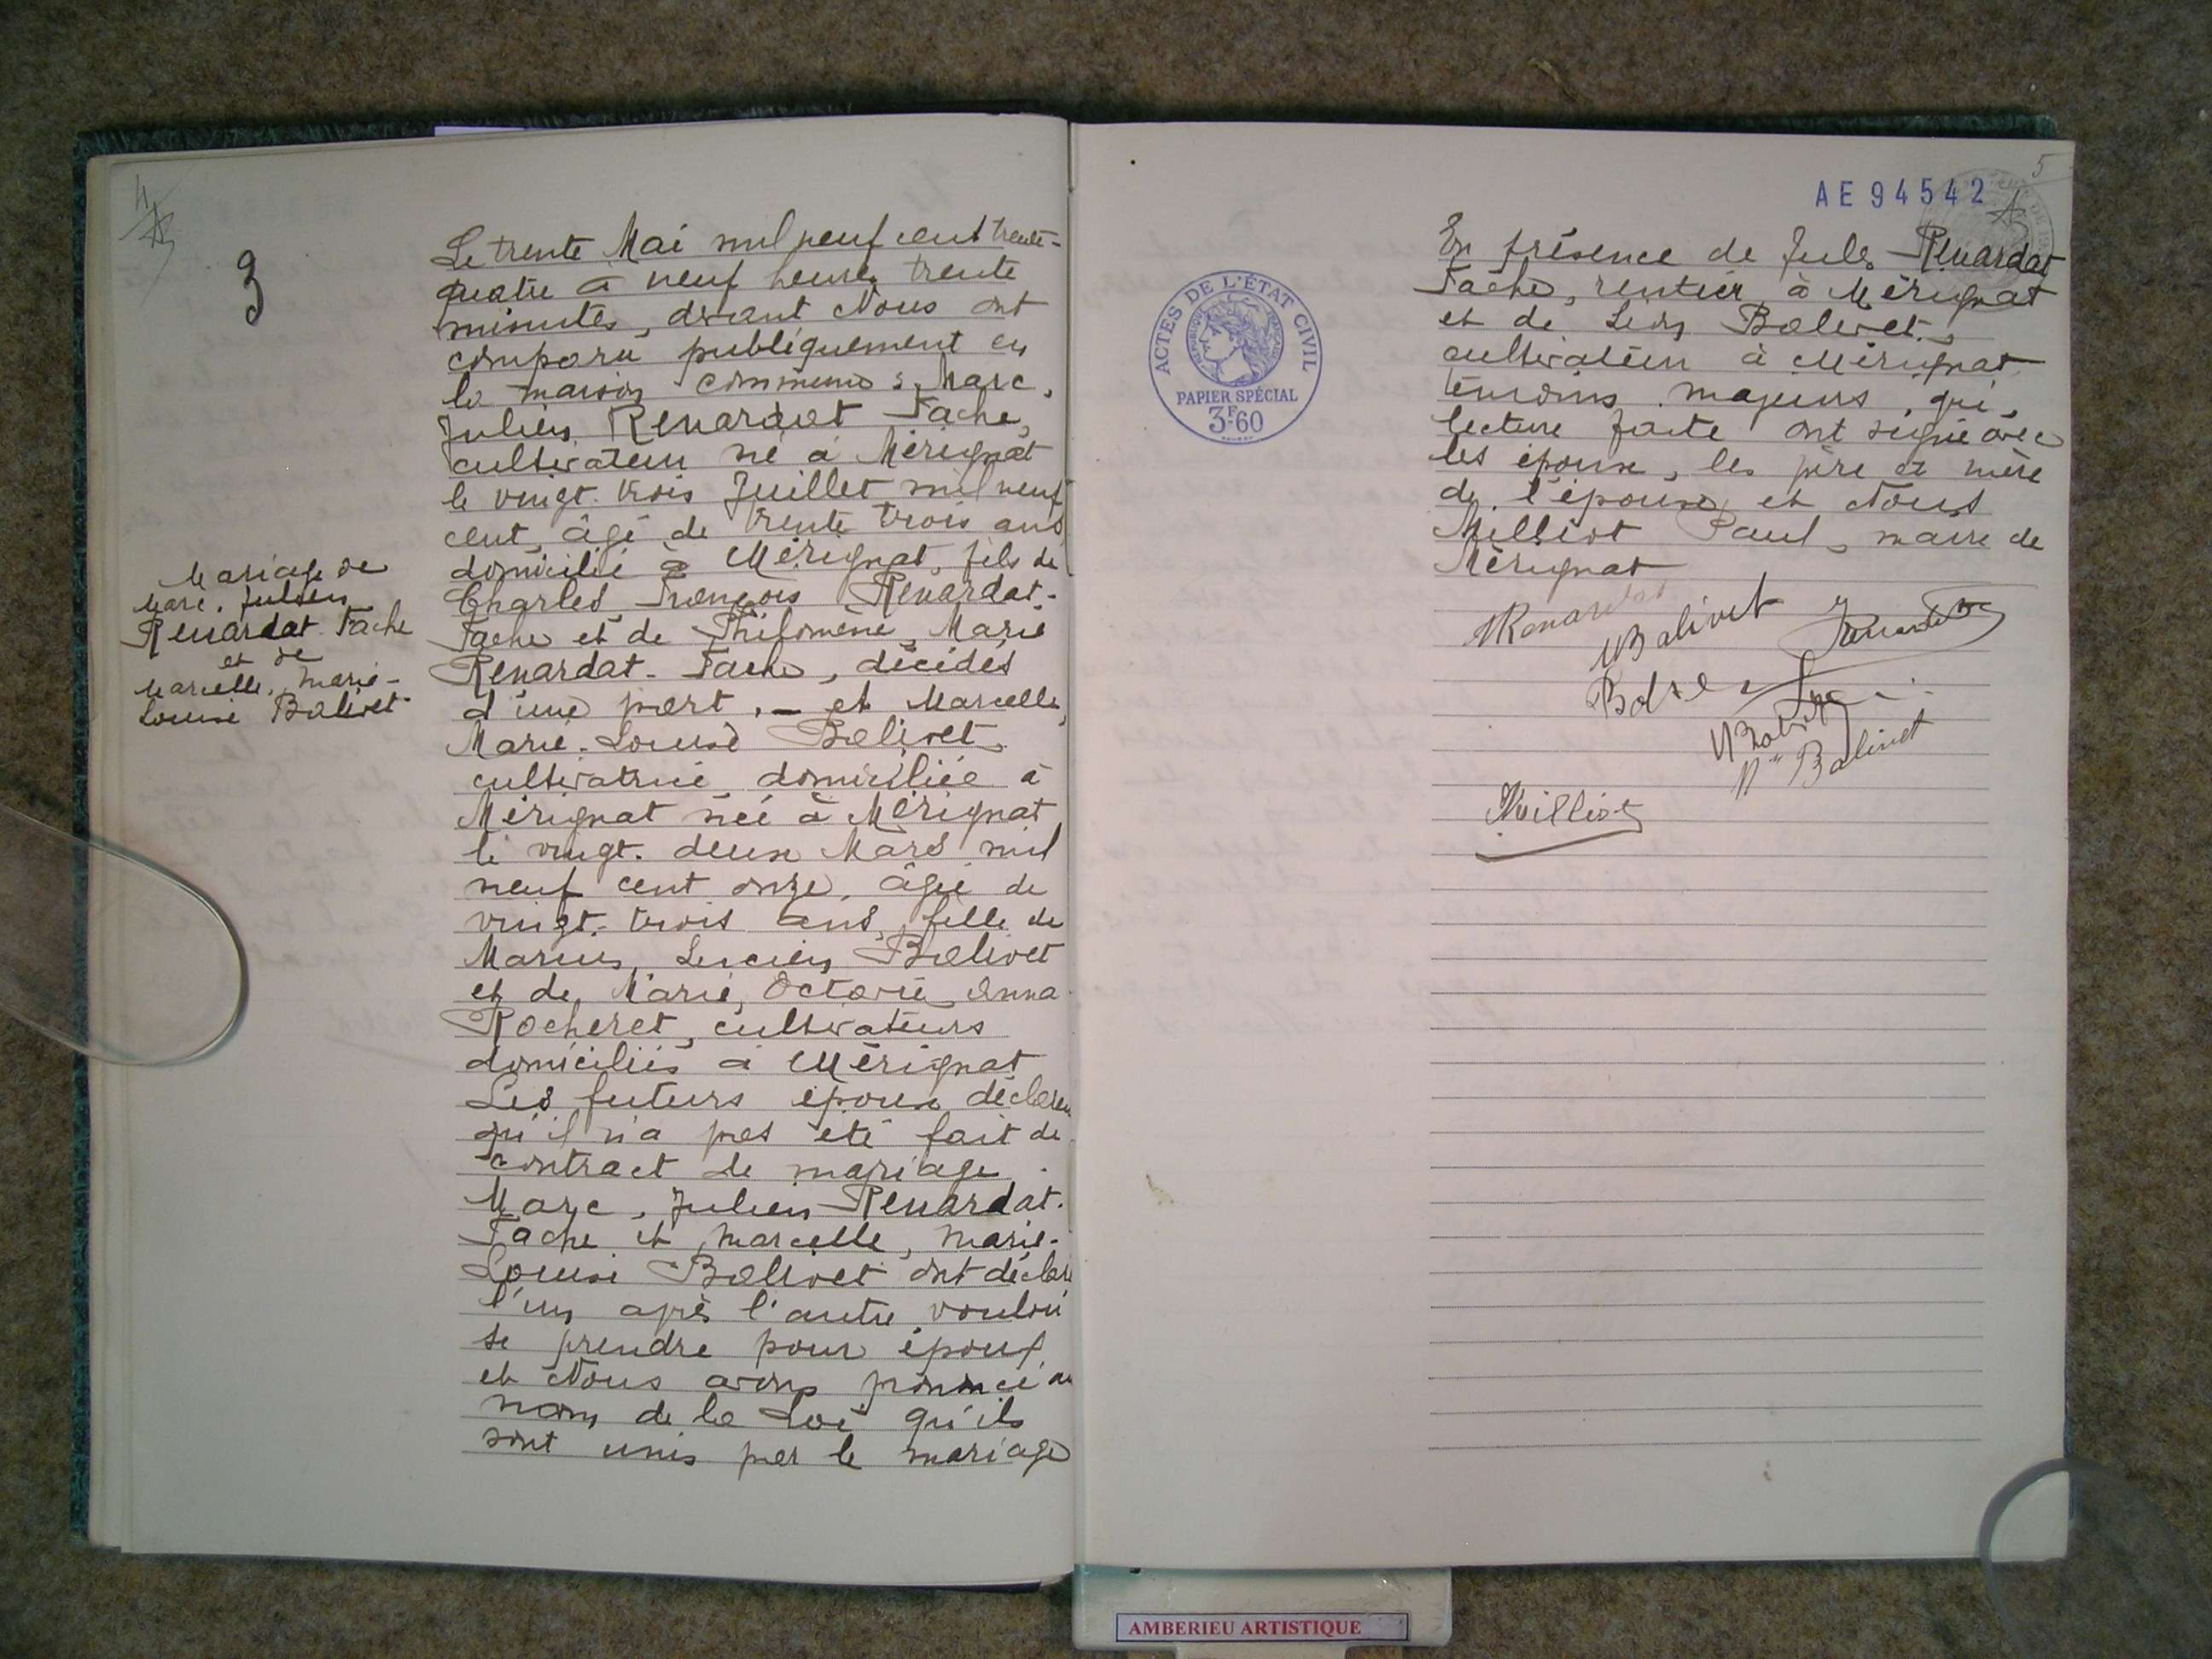 4
3
Mariage de
Marc, Julien
Renardat Fache
et de
Marcelle, Marie-
Louise Balivet
Le trente Mai mil neuf cent trente-
quatre à neuf heures trente
minutes, devant Nous ont
comparu publiquement en
la maison commune : Marc,
Julien Renardat Fache,
cultivateur né à Mérignat
le vingt-trois Juillet mil neuf
cent, âgé de trente trois ans
domicilié à Mérignat, fils de
Charles François Renardat-
Fache et de Philomène, Marie
Renardat-Fache, décédés
d'une part, - et Marcelle,
Marie-Louise Balivet,
cultivatrice domiciliée à
Mérignat née à Mérignat
le vingt-deux Mars mil
neuf cent onze, âgée de
vingt-trois ans, fille de
Marius, Lucien Balivet
et de Marie, Octavie, Anna
Rocheret, cultivateurs
domiciliés à Mérignat
Les futurs époux déclarent
qu'il n'a pas été fait de
contract de mariage.
Marc, Julien Renardat-
Fache et Marcelle, Marie-
Louise Balivet ont déclaré
l'un après l'autre vouloir
se prendre pour époux
et Nous avons prononcé au
nom de la Loi qu'ils
sont unis par le mariage
5
AE 94542
ACTES DE L'ÉTAT CIVIL
RÉPUBLIQUE FRANÇAISE
PAPIER SPÉCIAL
3F60
En présence de Jules Renardat
Fache, rentier à Mérignat
et de Léon Balivet,
cultivateur à Mérignat
témoins majeurs, qui,
lecture faite ont signé avec
les époux, les père et mère
de l'épouse et Nous
Milliot Paul, maire de
Mérignat
Renardat
M Balivet
Balivet
Milliot
AMBERIEU ARTISTIQUE